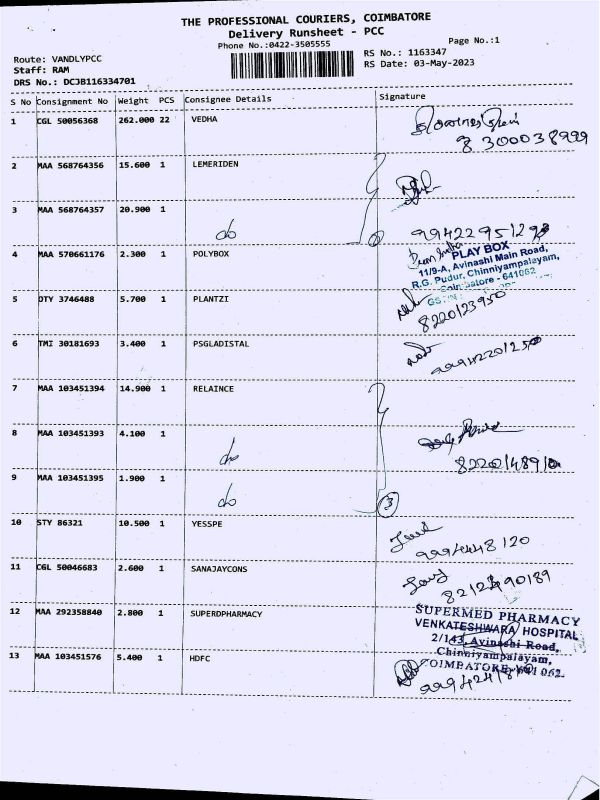 THE PROFESSIONAL COURIERS, COIMBATORE
Delivery Runsheet - PCC
Phone No.:0422-3505555
Page No.:1
Route: VANDLYPCC
RS No.: 1163347
Staff: RAM
RS Date: 03-May-2023
DRS No.: DCJB116334701
S No Consignment No Weight PCS Consignee Details Signature
1 CGL 50056368 262.000 22 VEDHA
8300038999
2 MAA 568764356 15.600 1 LEMERIDEN
3 MAA 568764357 20.900 1
do
4 MAA 570661176 2.300 1 POLYBOX
PLAY BOX
11/9-A, Avinashi Main Road,
R.G. Pudur, Chinniyampalayam,
Coimbatore - 641062
5 DTY 3746488 5.700 1 PLANTZI
8220123950
6 TMI 30181693 3.400 1 PSGLADISTAL
7 MAA 103451394 14.900 1 RELAINCE
8 MAA 103451393 4.100 1
do
9 MAA 103451395 1.900 1
do
3
10 STY 86321 10.500 1 YESSPE
9994448120
11 CGL 50046683 2.600 1 SANAJAYCONS
12 MAA 292358840 2.800 1 SUPERDPHARMACY
SUPERMED PHARMACY
VENKATESHWARA HOSPITAL
2/143, Avinashi Road,
Chinniyampalayam,
COIMBATORE - 641 062.
13 MAA 103451576 5.400 1 HDFC